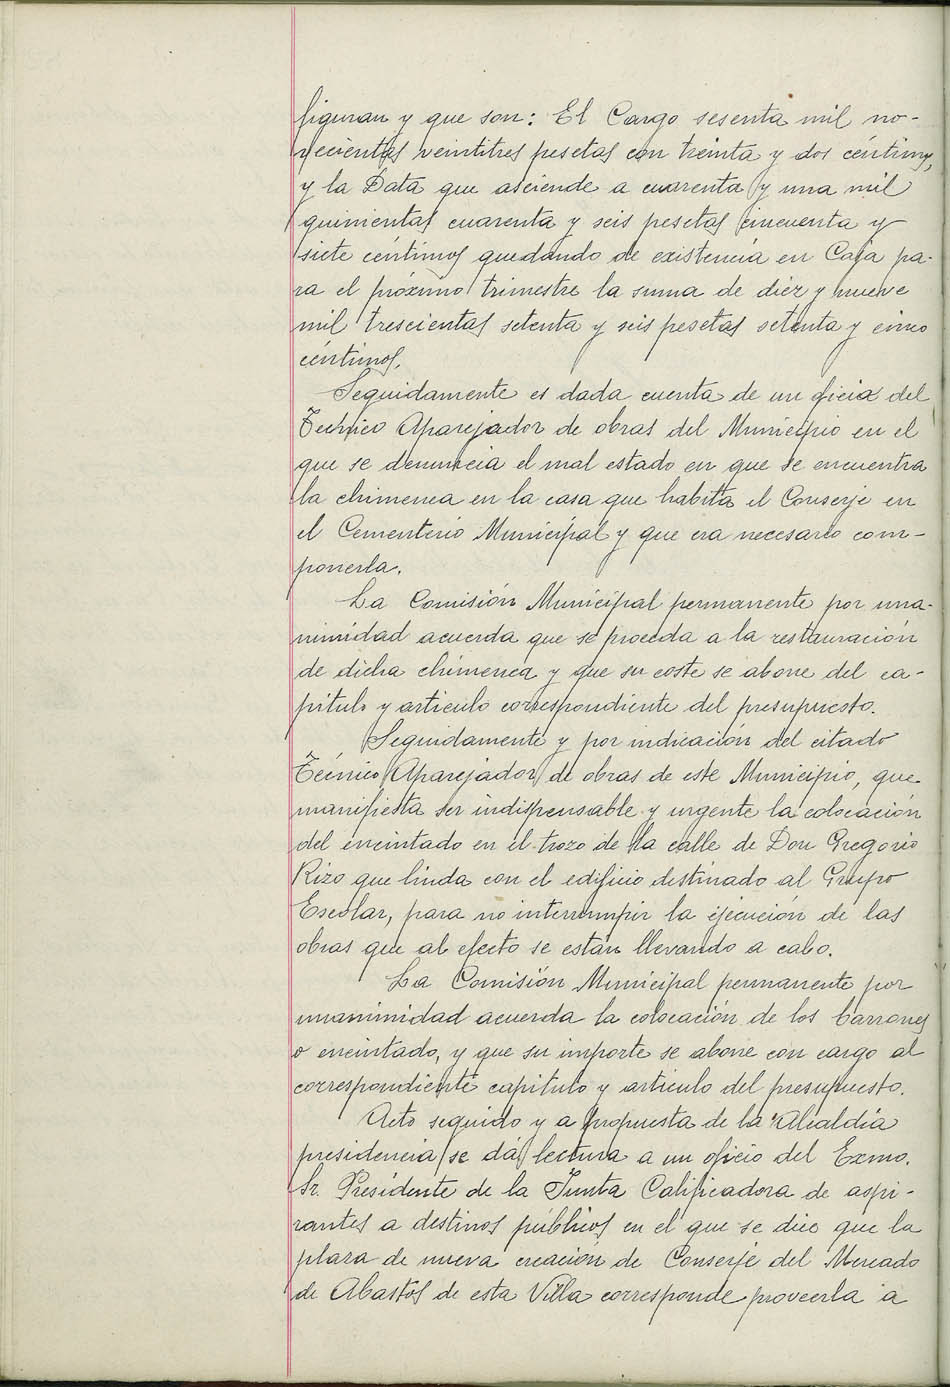 figuran y que son: El Cargo sesenta mil no-
vecientas veintitres pesetas con treinta y dos céntimos,
y la Data que asciende a cuarenta y una mil
quinientas cuarenta y seis pesetas cincuenta y
siete céntimos quedando de existencia en Caja pa-
ra el próximo trimestre la suma de diez y nueve
mil trescientas setenta y seis pesetas setenta y cinco
céntimos.
Seguidamente es dada cuenta de un oficio del
Técnico Aparejador de obras del Municipio en el
que se denuncia el mal estado en que se encuentra
la chimenea en la casa que habita el Conserje en
el Cementerio Municipal y que era necesario com-
ponerla.
La Comisión Municipal permanente por una-
nimidad acuerda que se proceda a la restauración
de dicha chimenea y que su coste se abone del ca-
pitulo y articulo correspondiente del presupuesto.
Seguidamente y por indicación del citado
Técnico Aparejador de obras de este Municipio, que
manifiesta ser indispensable y urgente la colocación
del encintado en el trozo de la calle de Don Gregorio
Rizo que linda con el edificio destinado al Grupo
Escolar, para no interrumpir la ejecución de las
obras que al efecto se están llevando a cabo.
La Comisión Municipal permanente por
unanimidad acuerda la colocación de los barrones
o encintado, y que su importe se abone con cargo al
correspondiente capitulo y articulo del presupuesto.
Acto seguido y a propuesta de la Alcaldía
presidencia se dá lectura a un oficio del Exmo.
Sr. Presidente de la Junta Calificadora de aspi-
rantes a destinos públicos en el que se dice que la
plaza de nueva creación de Conserje del Mercado
de Abastos de esta Villa corresponde proveerla a